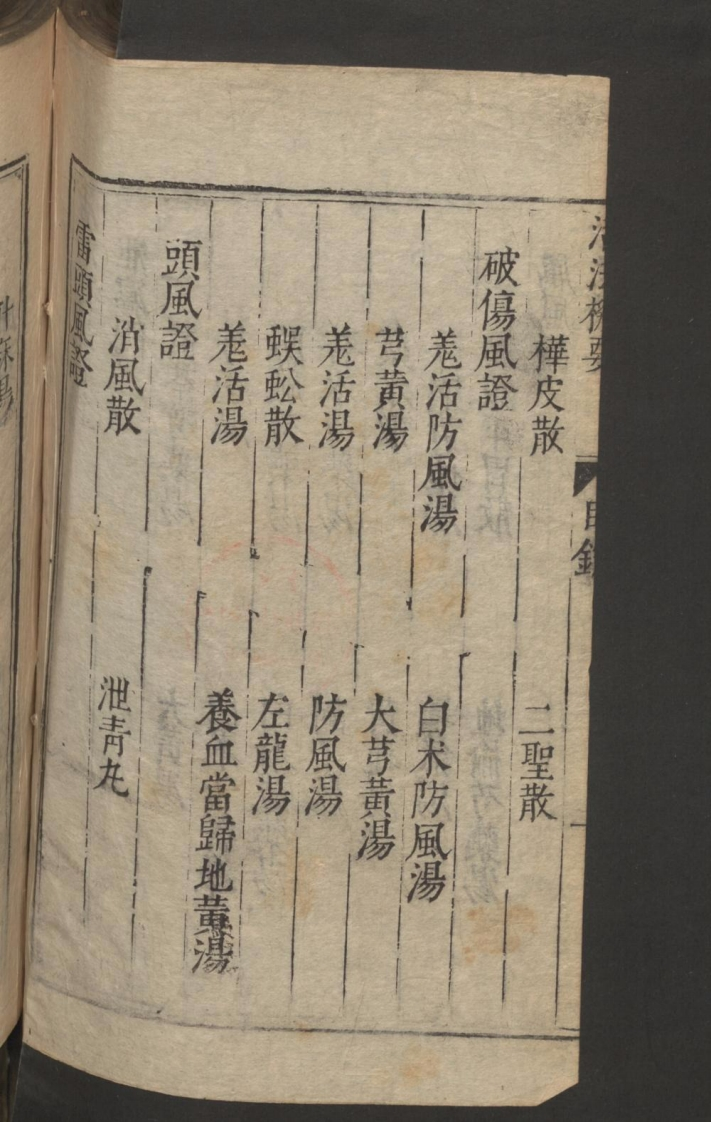 活法機要　目錄
樺皮散　二聖散
破傷風證
羌活防風湯　白朮防風湯
芎黃湯　大芎黃湯
羌活湯　防風湯
蜈蚣散　左龍湯
羌活湯　養血當歸地黃湯
頭風證
消風散　泄靑丸
雷頭風證